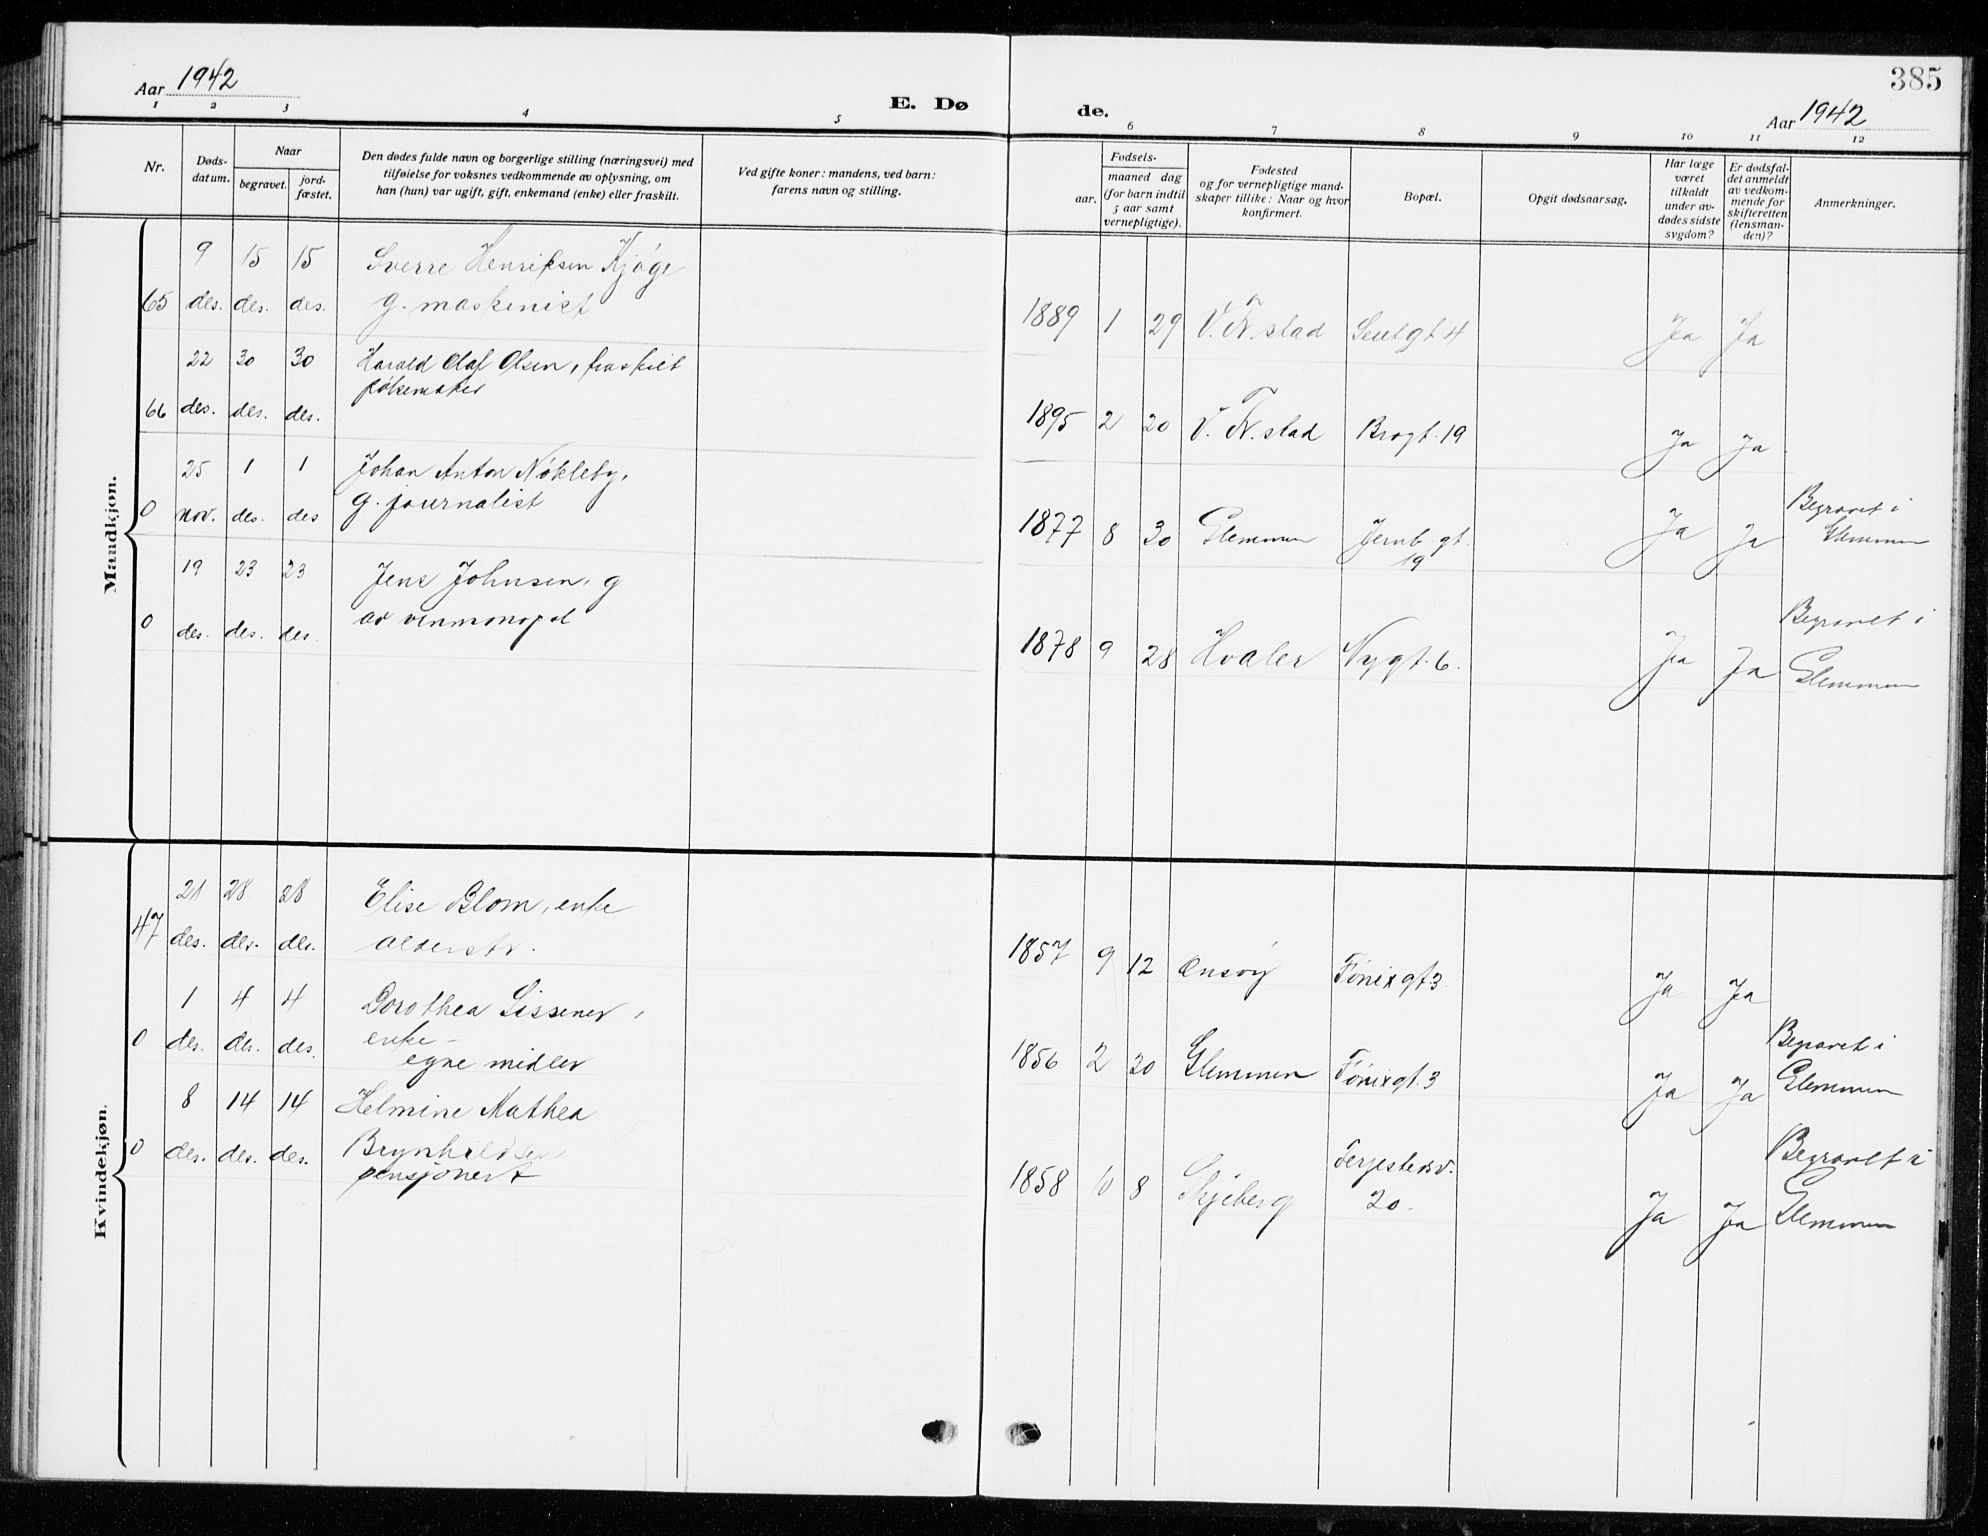 385
Aar 1942
E. Dø de.
Aar 1942
1 2 3 4 5 6 7 8 9 10 11 12
Nr.
Døds-
datum.
Naar
begravet.
jord-
fæstet.
Den dødes fulde navn og borgerlige stilling (næringsvei) med
tilføielse for voksnes vedkommende av oplysning, om
han (hun) var ugift, gift, enkemand (enke) eller fraskilt.
Ved gifte koner: mandens, ved barn:
farens navn og stilling.
Fødsels-
aar.
maaned dag
(for barn indtil
5 aar samt
vernepligtige).
Fødested
og for vernepligtige mand-
skaper tillike: Naar og hvor
konfirmert.
Bopæl.
Opgit dødsaarsag.
Har læge
været
tilkaldt
under av-
dødes sidste
sygdom?
Er dødsfal-
det anmeldt
av vedkom-
mende for
skifteretten
(lensman-
den)?
Anmerkninger.
Mandkjøn.
9 15 15 Sverre Henriksen Kjøge
65 des. des. des. g. maskenist
1889 1 29 V. Fr.stad Seulgt 4 Ja Ja
22 30 30 Harald Olaf Olsen, fraskilt
pølsemaker
66 des. des. des.
1895 2 20 V. Fr.stad Brogt. 19 Ja Ja
25 1 1 Johan Anton Nøkleby,
0 nov. des. des g. journalist
1877 8 30 Glemmen Jernb.gt. 19 Ja Ja Begravet i
Glemmen
19 23 23 Jens Johnsen, g
0 des. des. des. av vinmonopol
1878 9 28 Hvaler Nygt. 6. Ja Ja Begravet i
Glemmen
Kvindekjøn.
21 28 28 Elise Blom, enke
47 des. des. des. alderstr.
1857 9 12 Onsøy Fønixgt 3. Ja Ja
1 4 4 Dorothea Lissener,
0 des. des. des. enke –
egne midler
1856 2 20 Glemmen Fønixgt. 3 Ja Ja Begravet i
Glemmen
8 14 14 Helmine Mathea
0 des. des. des. Brynhildsen
pensjonert
1858 10 8 Skjeberg Ferjestedsv.
20. Ja Ja Begravet i
Glemmen